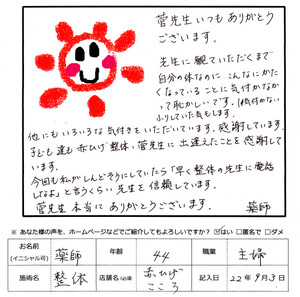 菅先生いつもありがとう
ございます。
先生に観ていただくまで
自分の体なのにこんなにかた
くなっていることに気付かなか
って恥かしいです。(気付かない
ふりしていた気もします。
他にもいろいろな気付きをいただいています。感謝しています。
子ども達も赤ひげ整体、菅先生に出逢えたことを感謝して
います。
今回も私がしんどそうにしていたら「早く整体の先生に電話
しなよ」と言うくらい先生を信頼しています。
菅先生本当にありがとうございます。
薬師
※ あなた様の声を、ホームページなどでご紹介してもよろしいですか? ☑はい □匿名で □ダメ
お名前
(イニシャル可)
薬師
年齢
44
職業
主婦
施術名
整体
店舗名(必須)
赤ひげ
こころ
記入日
22年9月3日